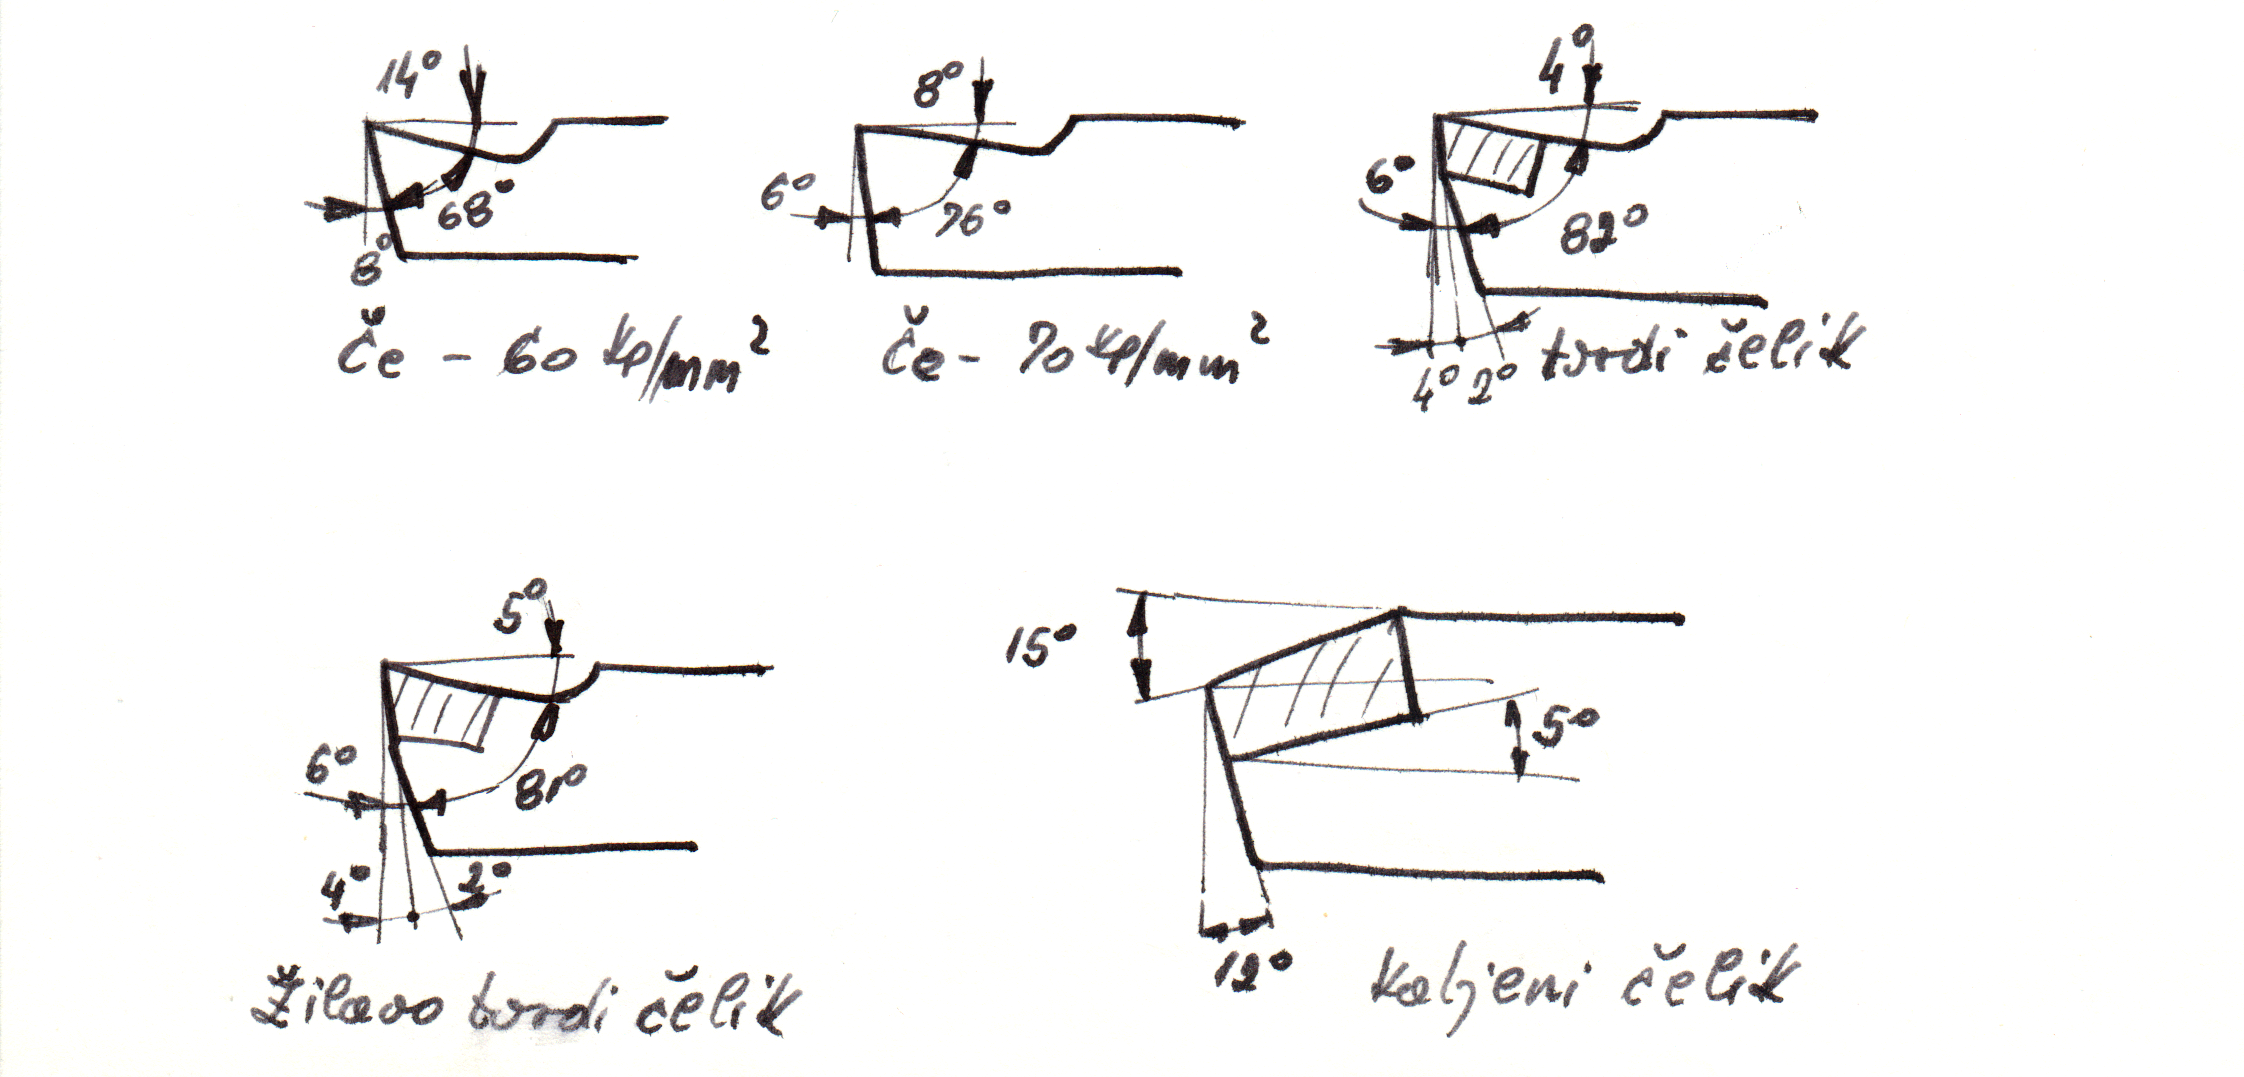 14°
68°
8°
Če - 60 kp/mm²
8°
6°
76°
Če - 70 kp/mm²
4°
6°
82°
4° 2°
tvrdi čelik
5°
6°
81°
4°
2°
Žilavo tvrdi čelik
15°
5°
12°
Kaljeni čelik